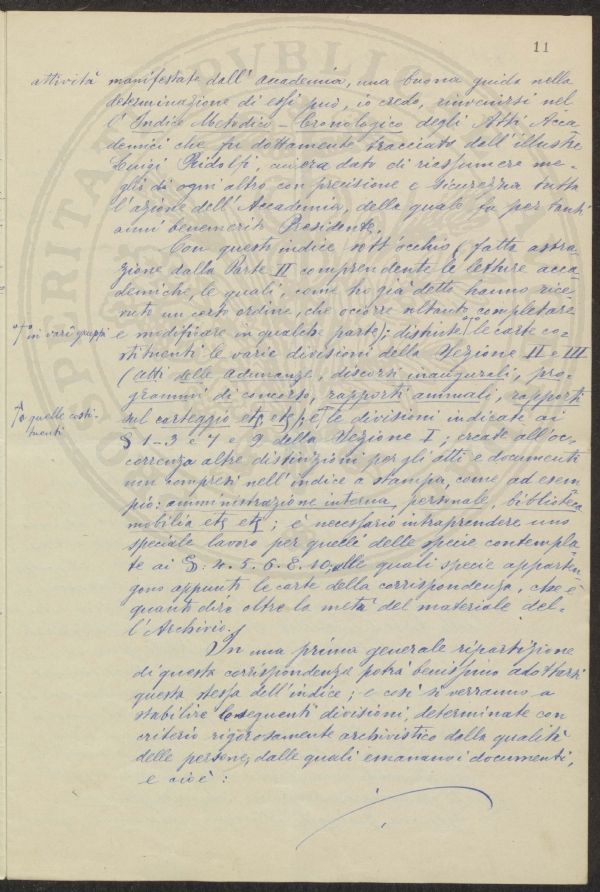 11
attività manifestate dall'Accademia, una buona guida nella
determinazione di essi può, io credo, rinvenirsi nel
l'Indice Metodico-Cronologico degli Atti Acca-
demici che fu dottamente tracciato dall'illustre
Luigi Ridolfi, cui era dato di riassumere me-
glio di ogni altro con precisione e sicurezza tutta
l'azione dell'Accademia, della quale fu per tanti
anni benemerito Presidente.
Con questi indice sott'occhio (fatta astra-
zione dalla Parte II comprendente le letture acca-
demiche, le quali, come ho già detto hanno rice-
vuto un certo ordine, che occorre soltanto completare
e modificare in qualche parte); distinte le carte co-
in vari gruppi
stituenti le varie divisioni della Sezione II e III
(atti delle adunanze, discorsi inaugurali, pro-
grammi di concorso, rapporti annuali, rapporti
sul carteggio etc, etc); e le divisioni indicate ai
o quelle costi-
tuenti
§ 1-3 e 7 e 9 della Sezione I; create all'oc-
correnza altre distinzioni per gli atti e documenti
non compresi nell'indice a stampa, come ad esem
pio: amministrazione interna, personale, biblioteca
mobilia etc, etc; è necessario intraprendere uno
speciale lavoro per quelli delle specie contempla-
te ai §: 4. 5. 6. 8. 10; alle quali specie apparten-
gono appunto le carte della corrispondenza, che è
quanti dire oltre la metà del materiale del-
l'Archivio.
In una prima generale ripartizione
di questa corrispondenza potrà benissimo adottarsi
questa stessa dell'indice; e così si verranno a
stabilire le seguenti divisioni, determinate con
criterio rigorosamente archivistico dalla qualità
delle persone, dalle quali emanano i documenti,
e cioè: